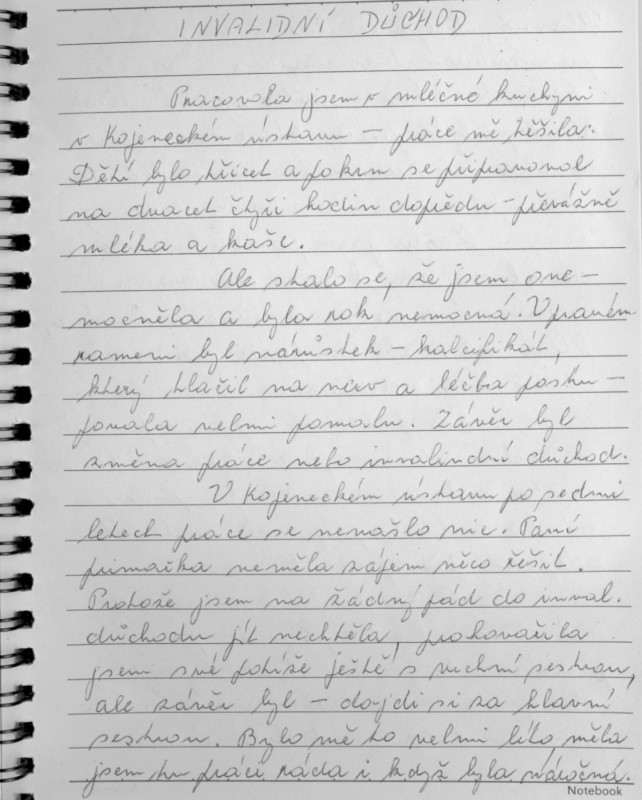 INVALIDNÍ DŮCHOD
Pracovala jsem v mléčné kuchyni
v Kojeneckém ústavu – práce mě těšila.
Dětí bylo třicet a pokrm se připravoval
na dvacet čtyři hodin dopředu – převážně
mléka a kaše.
Ale stalo se, že jsem one–
mocněla a byla rok nemocná. V pravém
rameni byl nárůstek – kalcifikát,
který tlačil na nerv a léčba postu–
povala velmi pomalu. Závěr byl
změna práce nebo invalindní důchod.
V Kojeneckém ústavu po sedmi
letech práce se nenašlo nic. Paní
primačka neměla zájem něco řešit.
Protože jsem na žádný pád do inval.
důchodu jít nechtěla, prohovořila
jsem své potíže ještě s vrchní sestrou,
ale závěr byl – dojdi si za hlavní
sestrou. Bylo mě to velmi líto, měla
jsem tu práci ráda i když byla náročná.
Notebook